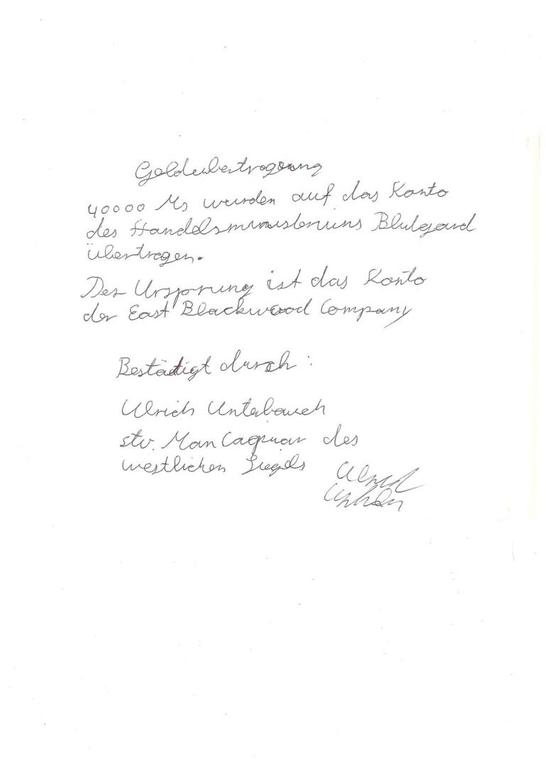 Geldübertragung
40000 Ms wurden auf das Konto
des Handelsministeriums
übertragen.
Der Ursprung ist das Konto
der East Blackwood Company
Bestätigt durch:
Ulrich Unterbauch
stv. des
westlichen Siegels